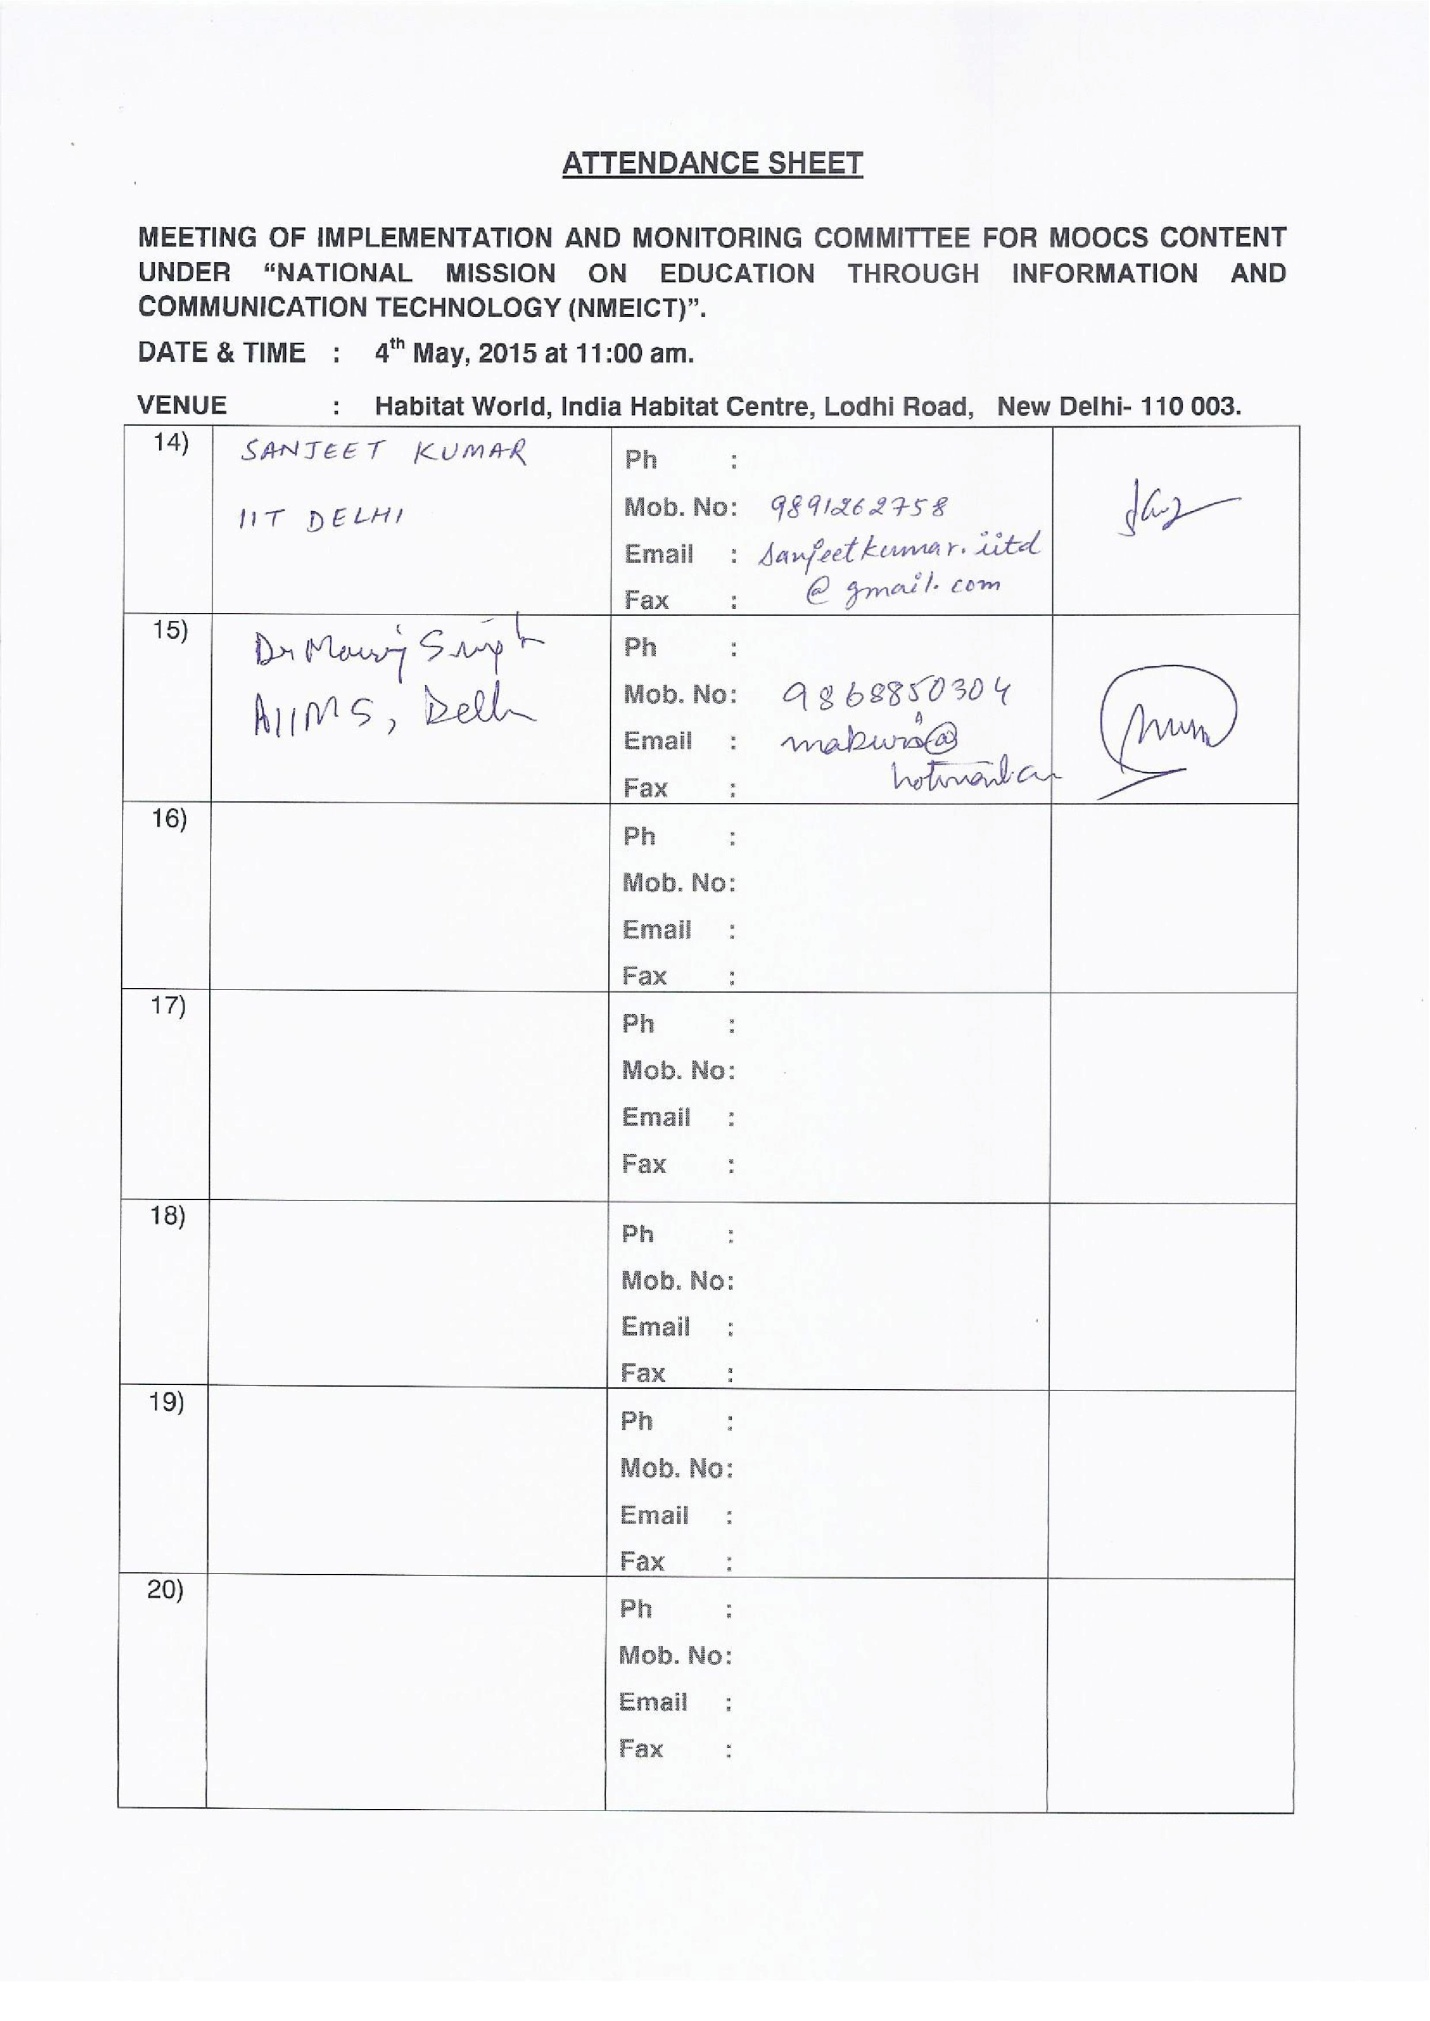 ATTENDANCE SHEET
MEETING OF IMPLEMENTATION AND MONITORING COMMITTEE FOR MOOCS CONTENT
UNDER “NATIONAL MISSION ON EDUCATION THROUGH INFORMATION AND
COMMUNICATION TECHNOLOGY (NMEICT)”.
DATE & TIME : 4th May, 2015 at 11:00 am.
VENUE : Habitat World, India Habitat Centre, Lodhi Road, New Delhi- 110 003.
14) SANJEET KUMAR
IIT DELHI
Ph :
Mob. No: 9891262758
Email : sanjeetkumar.iitd
@gmail.com
Fax :
15) Dr Singh
AIIMS, Delhi
Ph :
Mob. No: 9868850304
Email :
Fax :
16)
Ph :
Mob. No:
Email :
Fax :
17)
Ph :
Mob. No:
Email :
Fax :
18)
Ph :
Mob. No:
Email :
Fax :
19)
Ph :
Mob. No:
Email :
Fax :
20)
Ph :
Mob. No:
Email :
Fax :